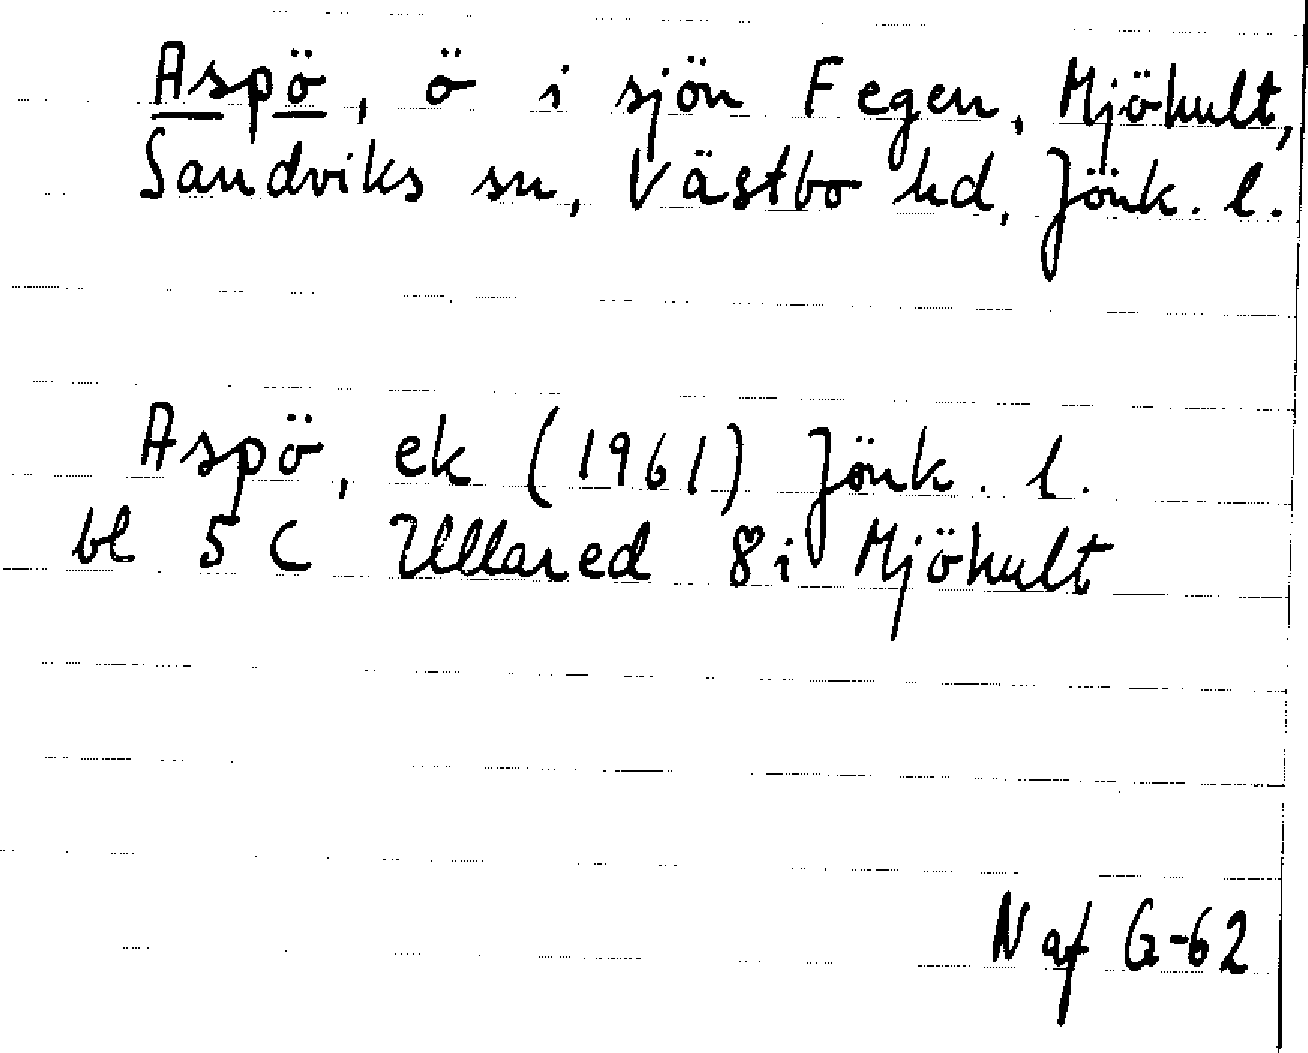 Aspö, ö i sjön Fegen, Mjöhult,
Sandviks sn, Västbo hd, Jönk. l.
Aspö, ek (1961) Jönk. l.
bl 5 C Ullared 8i Mjöhult
N af G-62